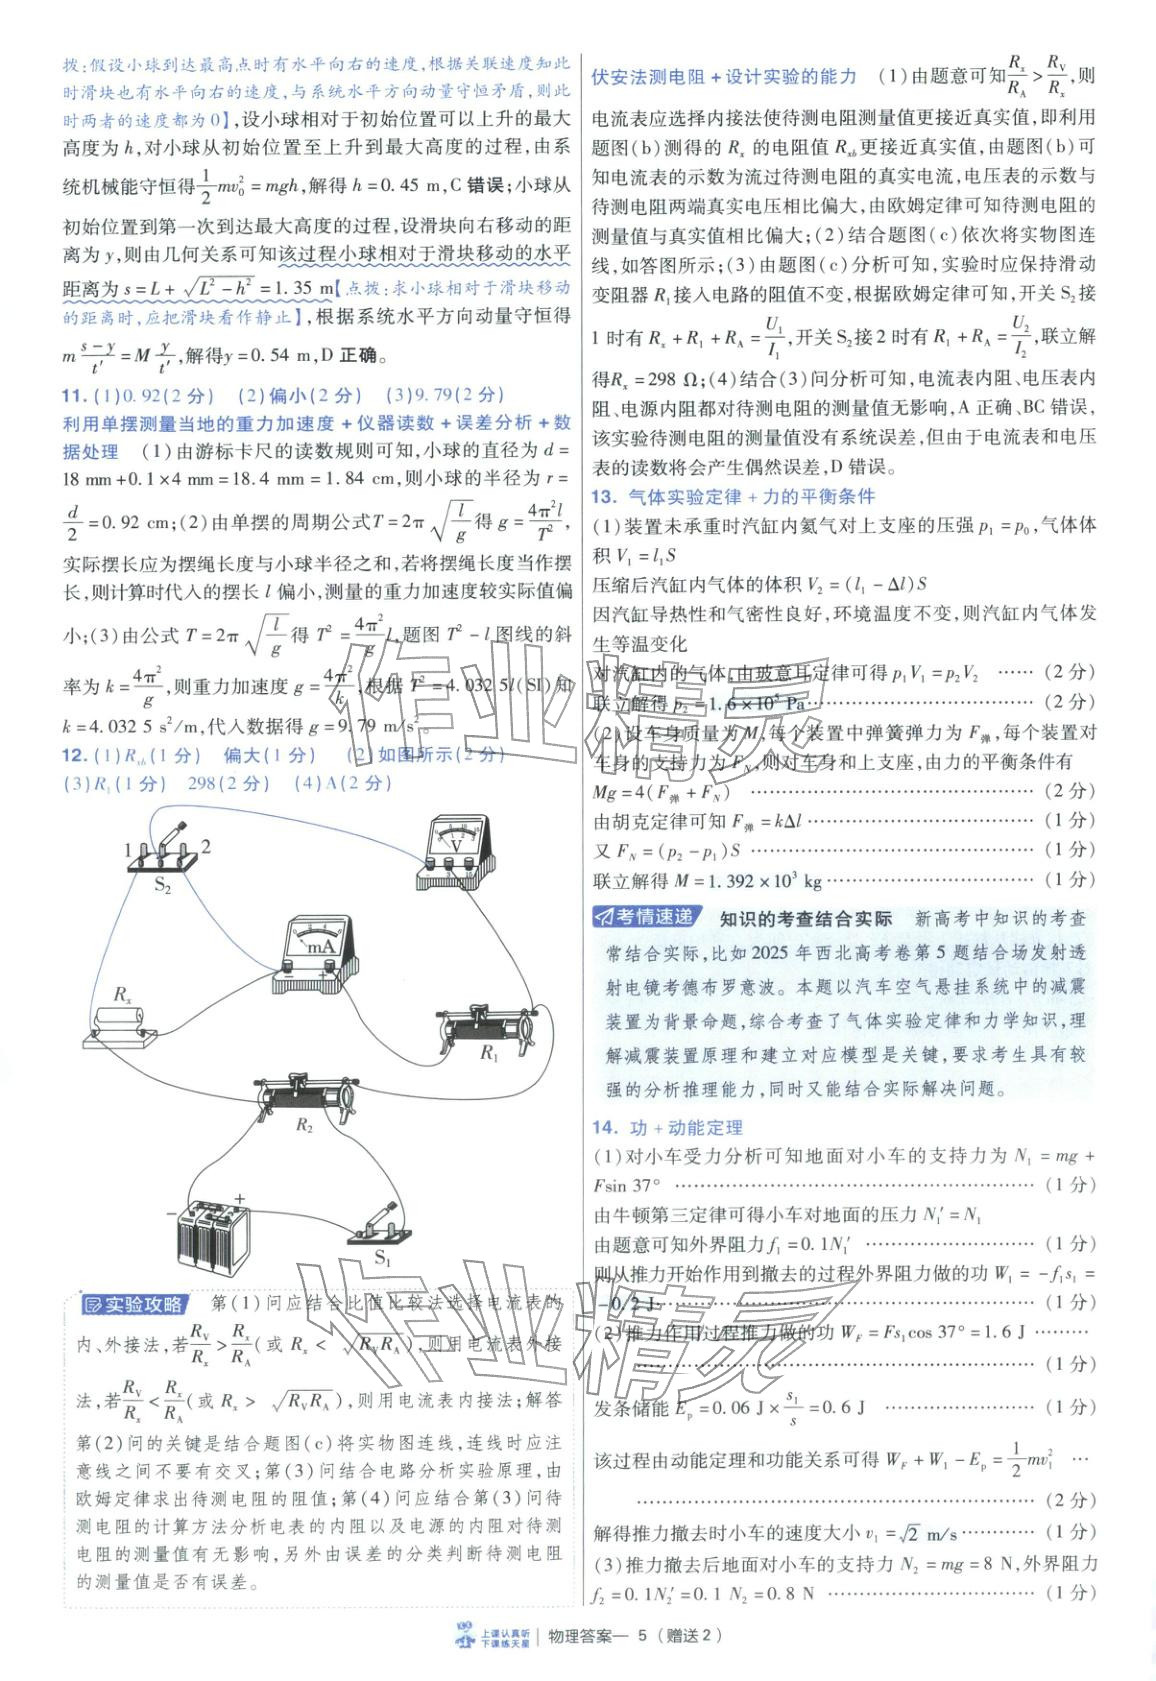 拨:假设小球到达最高点时有水平向右的速度,根据关联速度知此
时滑块也有水平向右的速度,与系统水平方向动量守恒矛盾,则此
时两者的速度都为0】,设小球相对于初始位置可以上升的最大
高度为 h,对小球从初始位置至上升到最大高度的过程,由系
统机械能守恒得\frac{1}{2}mv_0^2=mgh,解得 h=0.45 m,C 错误;小球从
初始位置到第一次到达最大高度的过程,设滑块向右移动的距
离为 y,则由几何关系可知该过程小球相对于滑块移动的水平
距离为 s=L+\sqrt{L^2-h^2}=1.35 m【点拨:求小球相对于滑块移动
的距离时,应把滑块看作静止】,根据系统水平方向动量守恒得
m\frac{s-y}{t'}=M\frac{y}{t'},解得y=0.54 m,D 正确。
11.(1)0.92(2分) (2)偏小(2分) (3)9.79(2分)
利用单摆测量当地的重力加速度+仪器读数+误差分析+数
据处理 (1)由游标卡尺的读数规则可知,小球的直径为 d=
18 mm+0.1×4 mm=18.4 mm=1.84 cm,则小球的半径为 r=
\frac{d}{2}=0.92 cm;(2)由单摆的周期公式T=2π\sqrt{\frac{l}{g}}得 g=\frac{4π^2l}{T^2},
实际摆长应为摆绳长度与小球半径之和,若将摆绳长度当作摆
长,则计算时代入的摆长 l 偏小,测量的重力加速度较实际值偏
小;(3)由公式 T=2π\sqrt{\frac{l}{g}}得 T^2=\frac{4π^2}{g}l,题图 T^2-l 图线的斜
率为 k=\frac{4π^2}{g},则重力加速度 g=\frac{4π^2}{k},根据 T^2=4.032 5l(SI)知
k=4.032 5 s^2/m,代入数据得 g=9.79 m/s^2。
12.(1)R_{xb}(1分) 偏大(1分) (2)如图所示(2分)
(3)R_1(1分) 298(2分) (4)A(2分)
1 2
S_2
V
mA
- +
R_x
R_1
R_2
- +
S_1
实验攻略 第(1)问应结合比值比较法选择电流表的
内、外接法,若\frac{R_V}{R_x}>\frac{R_x}{R_A}(或 R_x<\sqrt{R_VR_A}),则用电流表外接
法,若\frac{R_V}{R_x}<\frac{R_x}{R_A}(或 R_x>\sqrt{R_VR_A}),则用电流表内接法;解答
第(2)问的关键是结合题图(c)将实物图连线,连线时应注
意线之间不要有交叉;第(3)问结合电路分析实验原理,由
欧姆定律求出待测电阻的阻值;第(4)问应结合第(3)问待
测电阻的计算方法分析电表的内阻以及电源的内阻对待测
电阻的测量值有无影响,另外由误差的分类判断待测电阻
的测量值是否有误差。
伏安法测电阻+设计实验的能力 (1)由题意可知\frac{R_x}{R_A}>\frac{R_V}{R_x},则
电流表应选择内接法使待测电阻测量值更接近真实值,即利用
题图(b)测得的 R_x 的电阻值 R_{xb}更接近真实值,由题图(b)可
知电流表的示数为流过待测电阻的真实电流,电压表的示数与
待测电阻两端真实电压相比偏大,由欧姆定律可知待测电阻的
测量值与真实值相比偏大;(2)结合题图(c)依次将实物图连
线,如答图所示;(3)由题图(c)分析可知,实验时应保持滑动
变阻器 R_1接入电路的阻值不变,根据欧姆定律可知,开关 S_2接
1 时有 R_x+R_1+R_A=\frac{U_1}{I_1},开关 S_2接 2 时有 R_1+R_A=\frac{U_2}{I_2},联立解
得R_x=298 Ω;(4)结合(3)问分析可知,电流表内阻、电压表内
阻、电源内阻都对待测电阻的测量值无影响,A 正确、BC 错误,
该实验待测电阻的测量值没有系统误差,但由于电流表和电压
表的读数将会产生偶然误差,D 错误。
13. 气体实验定律+力的平衡条件
(1)装置未承重时汽缸内氦气对上支座的压强 p_1=p_0,气体体
积 V_1=l_1S
压缩后汽缸内气体的体积 V_2=(l_1-Δl)S
因汽缸导热性和气密性良好,环境温度不变,则汽缸内气体发
生等温变化
对汽缸内的气体,由玻意耳定律可得 p_1V_1=p_2V_2 ……(2分)
联立解得 p_2=1.6×10^5 Pa……(2分)
(2)设车身质量为 M,每个装置中弹簧弹力为 F_弹,每个装置对
车身的支持力为 F_N,则对车身和上支座,由力的平衡条件有
Mg=4(F_弹+F_N) ……(2分)
由胡克定律可知 F_弹=kΔl……(1分)
又 F_N=(p_2-p_1)S ……(1分)
联立解得 M=1.392×10^3 kg……(1分)
考情速递 知识的考查结合实际 新高考中知识的考查
常结合实际,比如 2025 年西北高考卷第 5 题结合场发射透
射电镜考德布罗意波。本题以汽车空气悬挂系统中的减震
装置为背景命题,综合考查了气体实验定律和力学知识,理
解减震装置原理和建立对应模型是关键,要求考生具有较
强的分析推理能力,同时又能结合实际解决问题。
14. 功+动能定理
(1)对小车受力分析可知地面对小车的支持力为 N_1=mg+
Fsin 37° ……(1分)
由牛顿第三定律可得小车对地面的压力 N_1'=N_1
由题意可知外界阻力 f_1=0.1N_1' ……(1分)
则从推力开始作用到撤去的过程外界阻力做的功 W_1=-f_1s_1=
-0.2 J……(1分)
(2)推力作用过程推力做的功 W_F=Fs_1cos 37°=1.6 J ………
……(1分)
发条储能 E_p=0.06 J×\frac{s_1}{s}=0.6 J ……(1分)
该过程由动能定理和功能关系可得 W_F+W_1-E_p=\frac{1}{2}mv_1^2 …
……(2分)
解得推力撤去时小车的速度大小 v_1=\sqrt{2} m/s……(1分)
(3)推力撤去后地面对小车的支持力 N_2=mg=8 N,外界阻力
f_2=0.1N_2'=0.1 N_2=0.8 N ……(1分)
上课认真听
下课练天星
物理答案— 5(赠送2)
作业精灵
作业精灵